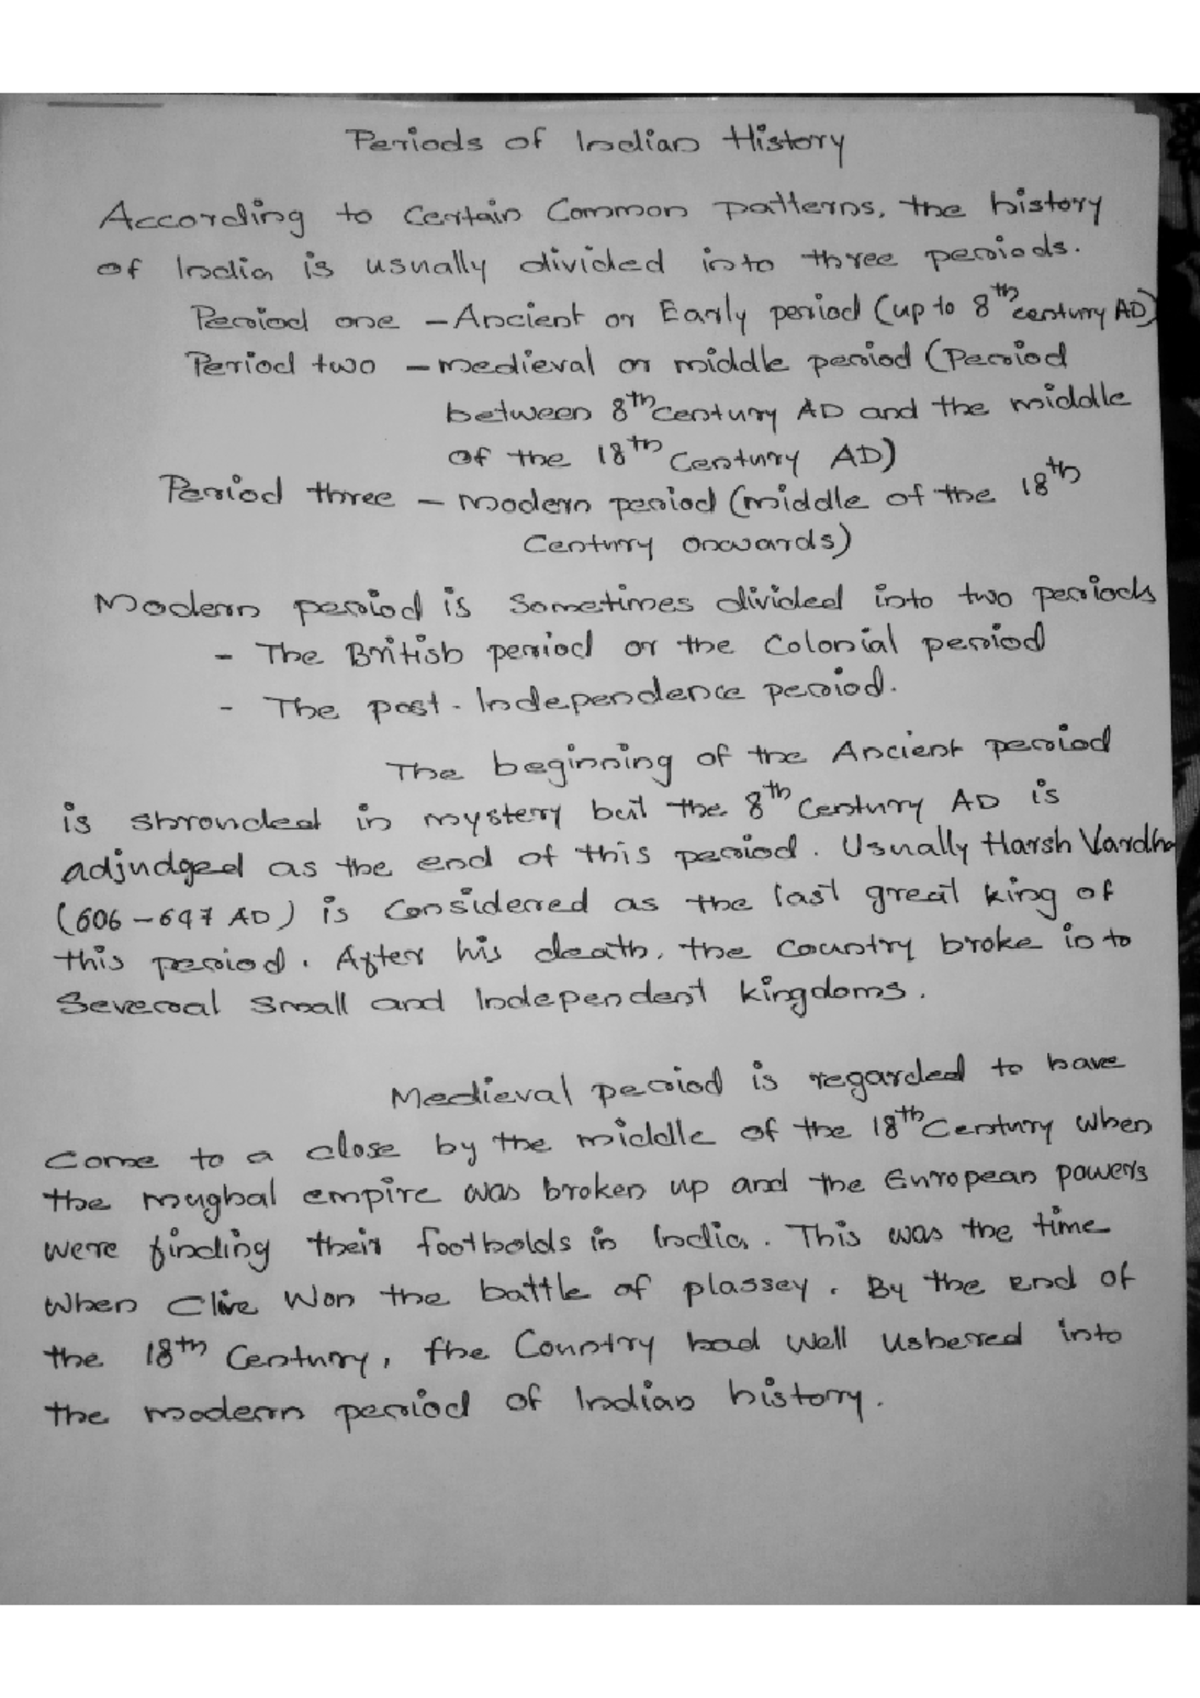 Periods of Indian History
According to Certain Common patterns, the history
of India is usually divided into three periods.
Period one - Ancient or Early period (up to 8th century AD)
Period two - medieval or middle period (Period
between 8th century AD and the middle
of the 18th Century AD)
Period three - modern period (middle of the 18th
Century onwards)
Modern period is sometimes divided into two periods
- The British period or the Colonial period
- The post-Independence period.
The beginning of the Ancient period
is shrouded in mystery but the 8th Century AD is
adjudged as the end of this period. Usually Harsh Vardha
(606-647 AD) is considered as the last great king of
this period. After his death, the country broke into
Several small and Independent kingdoms.
Medieval period is regarded to have
come to a close by the middle of the 18th Century when
the mughal empire was broken up and the European powers
were finding their footholds in India. This was the time
when Clive Won the battle of plassey. By the end of
the 18th Century, the Country had well ushered into
the modern period of Indian history.